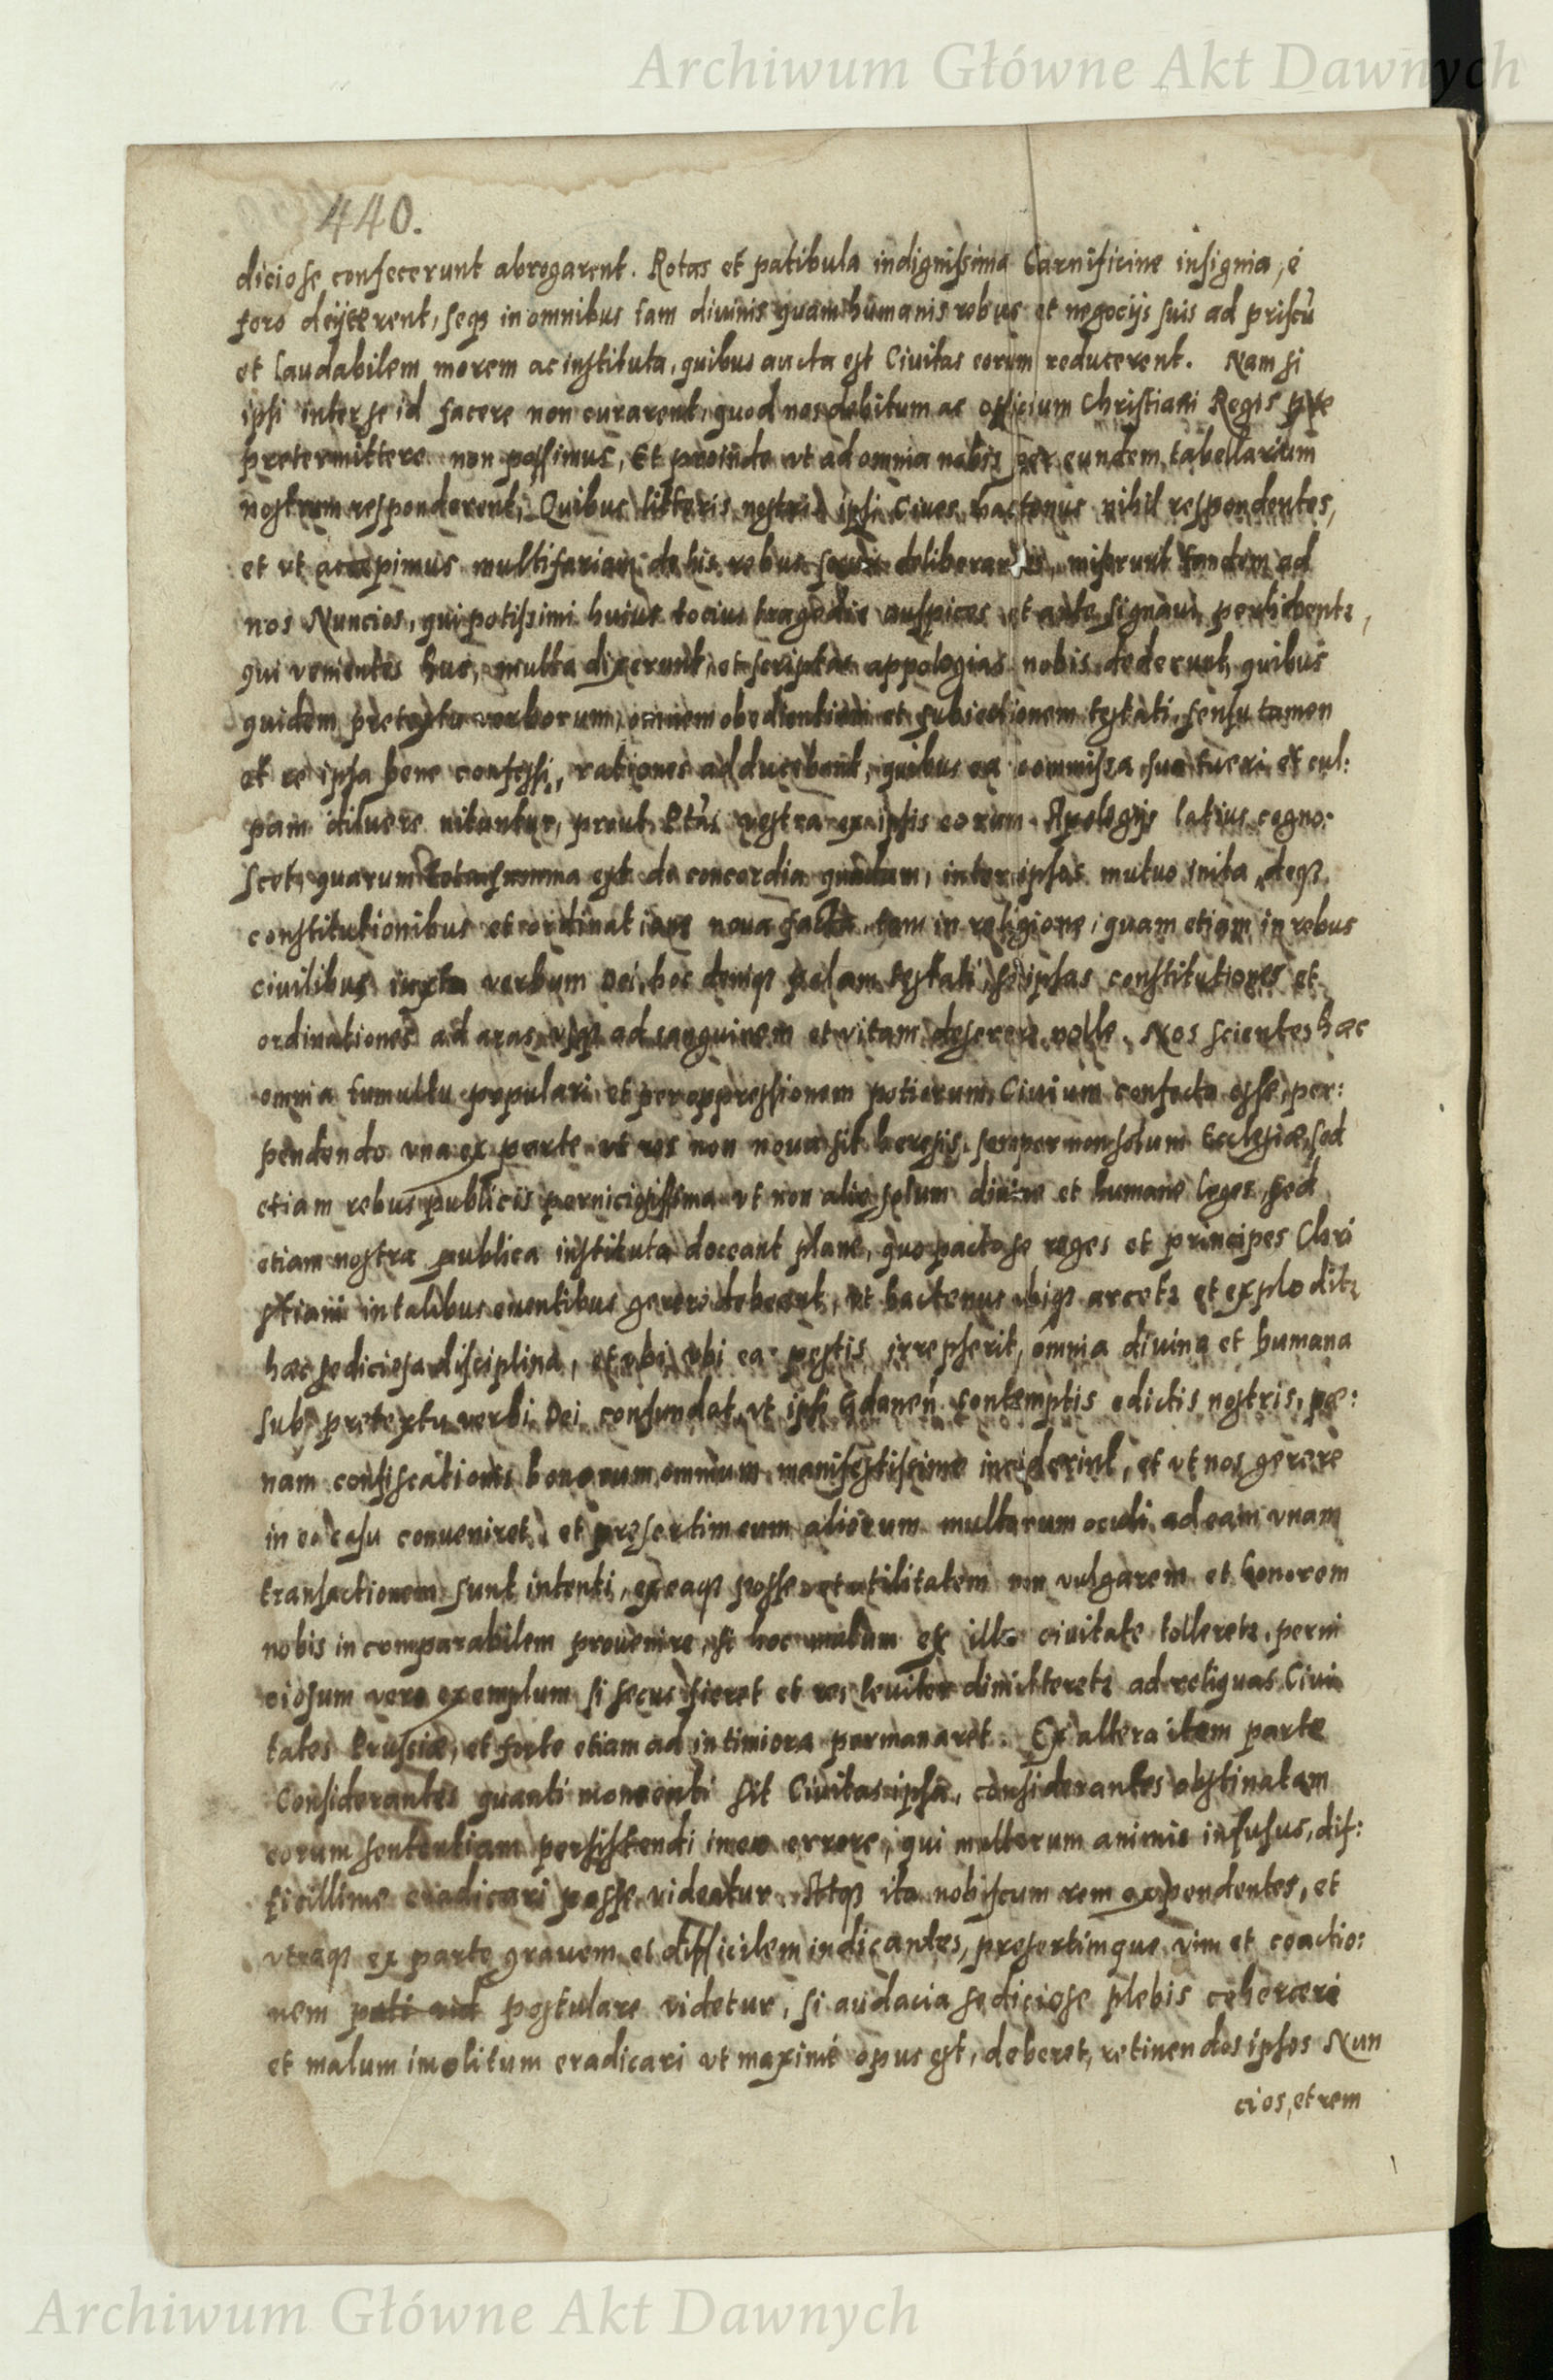 Archiwum Główne Akt Dawnych
440.
diciose confecerunt abrogarent. Rotas et patibula indignissima Carnificine insignia, é
foro deijcerent, seqȝ in omnibus tam diuinis quam humanis rebus et negocijs suis ad priscū
et laudabilem morem ac instituta, quibus aucta est Ciuitas eorum reducerent. Nam si
ipsi inter se id facere non curarent, quod nos debitum ac officium Christiani Regis
pretermittere non possimus, Et proinde vt ad omnia nobis per eundem tabellarium
nostrum responderent, Quibus litteris nostris ipsi Ciues hactenus nihil respondentes,
et vt accepimus multifariam de his rebus secum deliberantes, miserunt tandem ad
nos Nuncios, qui potissimi huius tocius tragedie auspices et ante signani perhibentȝ,
qui venientes huc, multa dixerunt, et scriptas appologias nobis dederunt, quibus
quidem pretextu verborum, omnem obedientiam et subiectionem testati, sensu tamen
et re ipsa bene confessi, rationes adducebant, quibus ea commissa sua tueri et cul:
pam diluere nitantur, prout Ptas vestra ex ipsis eorum Apologijs latius cogno:
scet, quarum tota summa est de concordia quadam, inter ipsos mutuo inita, deqȝ
constitutionibus et ordinatione noua facta, tam in religione, quam etiam in rebus
ciuilibus iuxta verbum Dei, hoc deniqȝ palam testati, se ipsas constitutiones et
ordinationes ad aras vsqȝ ad sanguinem et vitam deserere nolle. Nos scientes hæc
omnia tumultu populari et per oppressionem potiorum Ciuium confecta esse, per:
pendendo vna ex parte vt res non noua sit heresis, semper non solum Ecclesiæ, sed
etiam rebus publicis perniciosissima vt non alie solum diuine et humane leges, sed
etiam nostra publica instituta doceant plane, quo pacto se reges et principes Chri
stiani in talibus euentibus gerere debeant, vt hactenus vbiqȝ arcetȝ et exploditȝ
hæc sediciosa disciplina, et vbi vbi ea pestis irrepserit, omnia diuina et humana
sub pretextu verbi Dei confundat, vt ipsi Gdanen̄ contemptis edictis nostris, pæ:
nam confiscationis bonorum omnium manifestissime inciderint, et vt nos gerere
in eo casu conueniret, et presertim cum aliorum multorum oculi ad eam vnam
transactionem sunt intenti, ex eaqȝ posse et utilitatem non vulgarem et honorem
nobis incomparabilem prouenire, si hoc malum ex illa ciuitate tolleretȝ, perni
ciosum vero exemplum si secus fieret et res leuiter dimitteretȝ ad reliquas Ciui
tates Prussiæ, et forte etiam ad intimiora permanaret. Ex altera item parte
Considerantes quanti momenti sit Ciuitas ipsa, considerantes obstinatam
eorum sententiam persistendi in eo errore, qui multorum animis infusus, dif:
ficillime eradicari posse videatur. Atqȝ ita nobiscum rem expendentes, et
vtraqȝ ex parte grauem et difficilem indicantes, presertim que vim et coactio:
nem postulare videtur, si audacia sediciose plebis coherceri
et malum imolitum eradicari vt maximé opus est, deberet, retinendos ipsos Nun
cios, et rem
Archiwum Główne Akt Dawnych